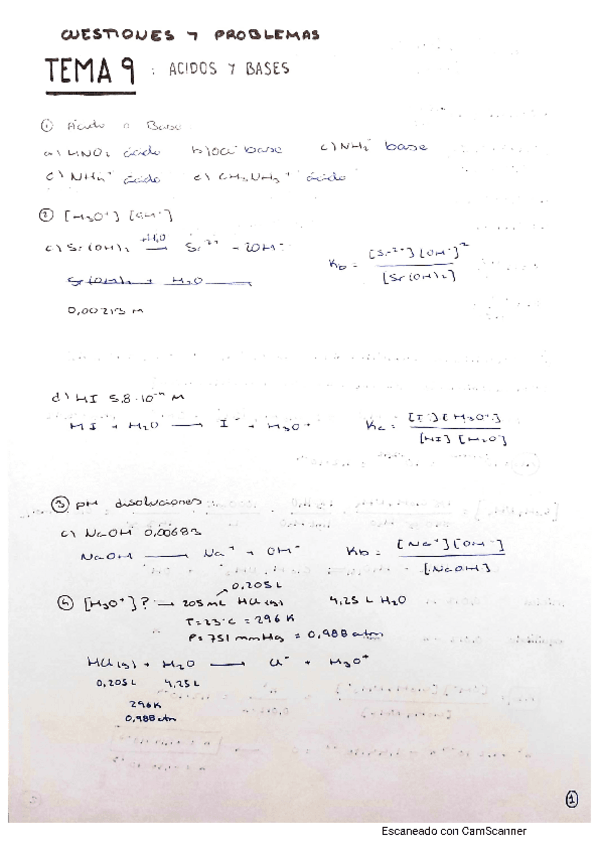 CUESTIONES Y PROBLEMAS
TEMA 9 : ACIDOS Y BASES
① Ácido o Base
a) HNO₂ ácido b) OCl⁻ base c) NH₂⁻ base
c) NH₄⁺ ácido e) CH₃NH₃⁺ ácido
② [H₃O⁺] [OH⁻]
c) Sr(OH)₂ +H₂O → Sr²⁺ + 2OH⁻ Kb = [Sr²⁺][OH⁻]² / [Sr(OH)₂]
Sr(OH)₂ + H₂O
0,00213 M
d) HI 5.8·10⁻⁴ M
HI + H₂O → I⁻ + H₃O⁺ Ka = [I⁻][H₃O⁺] / [HI][H₂O]
③ pH disoluciones
c) NaOH 0,00683
NaOH → Na⁺ + OH⁻ Kb = [Na⁺][OH⁻] / [NaOH]
0,205 L
④ [H₃O⁺]? → 205 mL HCl(g) 4,25 L H₂O
T = 23°C = 296 K
P = 751 mmHg = 0,988 atm
HCl(g) + H₂O → Cl⁻ + H₃O⁺
0,205 L 4,25 L
296 K
0,988 atm
1
Escaneado con CamScanner